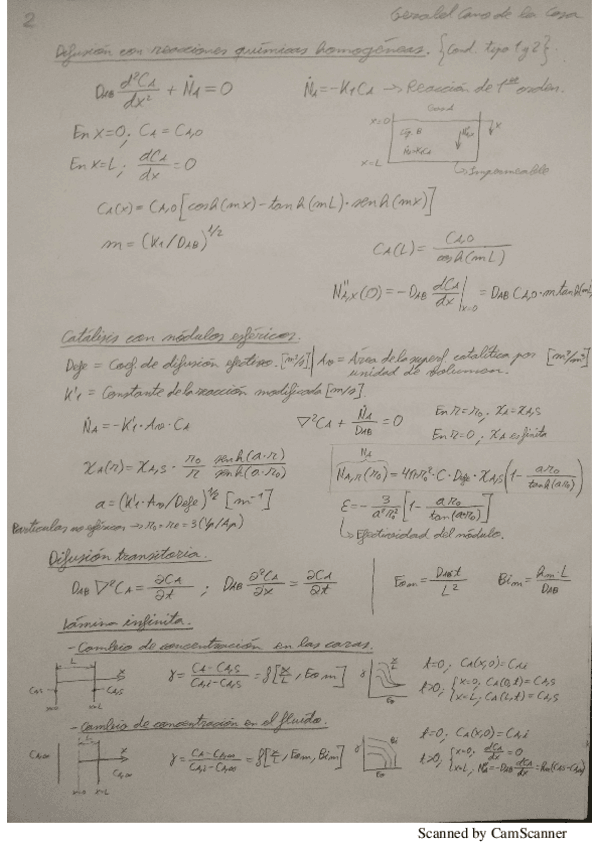 2
Difusión con reacciones químicas homogéneas. {Cond. tipo 1 y 2}.
D_AB d²C_A/dx² + Ṅ_A = 0    Ṅ_A = -K₁C_A → Reacción de 1er orden.
En x=0; C_A = C_A,0
x=0
x
En x=L; dC_A/dx = 0
x=L
Impermeable
C_A(x) = C_A,0 [cosh(mx) - tanh(mL)·senh(mx)]
m = (K₁/D_AB)^1/2    C_A(L) = C_A,0/cosh(mL)
N''_A,x(0) = -D_AB dC_A/dx|x=0 = D_AB C_A,0·m tanh(mL)
Catálisis con módulos esféricos.
Defe = Coef. de difusión efectivo. [m²/s] | A_v = Área de la superf. catalítica por unidad de volumen. [m²/m³]
K'₁ = Constante de la reacción modificada [m/s]
Ṅ_A = -K'₁·A_v·C_A    ∇²C_A + Ṅ_A/D_AB = 0    En r=r₀; x_A = x_A,s
En r=0; x_A es finita
x_A(r) = x_A,s · r₀/r · senh(a·r)/senh(a·r₀)    N_A,r(r₀) = 4πr₀²·C·Defe·x_A,s (1 - ar₀/tanh(ar₀))
a = (K'₁·A_v/Defe)^1/2 [m⁻¹]    ε = -3/a²r₀² [1 - ar₀/tan(a·r₀)]
Partículas no esféricas → r₀ = re = 3(Vp/Ap)
Efectividad del módulo.
Difusión transitoria.
D_AB ∇²C_A = ∂C_A/∂t ; D_AB ∂²C_A/∂x = ∂C_A/∂t    Fo_m = D_AB t/L²    Bi_m = h_m·L/D_AB
Lámina infinita.
- Cambio de concentración en las caras.
L
x
C_A,s
C_A,s
x=0
x=L
γ = C_A - C_A,s/C_A,i - C_A,s = f[x/L, Fo_m]
t=0; C_A(x,0) = C_A,i
t>0; {x=0; C_A(0,t) = C_A,s
x=L; C_A(L,t) = C_A,s
- Cambio de concentración en el fluido.
L
x
C_A,∞
C_A,∞
x=0
x=L
γ = C_A - C_A,∞/C_A,i - C_A,∞ = f[x/L, Fo_m, Bi_m]
Bi
t=0; C_A(x,0) = C_A,i
t>0; {x=0; dC_A/dx = 0
x=L; N''_A = -D_AB dC_A/dx = h_m(C_A,s - C_A,∞)
Scanned by CamScanner